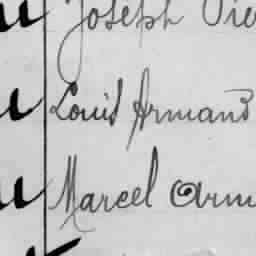 Joseph
Louis Armand
Marcel Arm